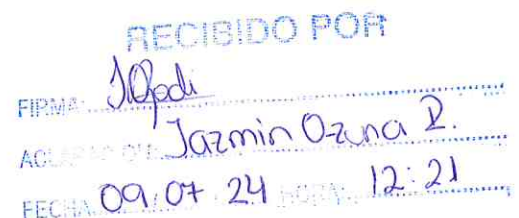 RECIBIDO POR
FIRMA:
ACLARACIÓN: Jazmin Ozuna R.
FECHA: 09/07 24 HORA: 12:21